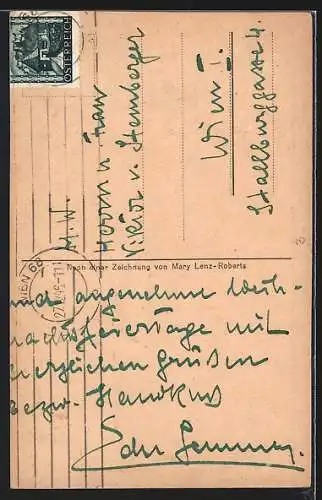 ÖSTERREICH
WIEN 68
H. W.
Herrn u Frau
Viktor v. Stemberger
Wien I.
Stallburggasse 4.
Nach einer Zeichnung von Mary Lenz-Roberts
und angenehme Weih-
nachtsfeiertage mit
herzlichen Grüßen
bezw. Handkuss